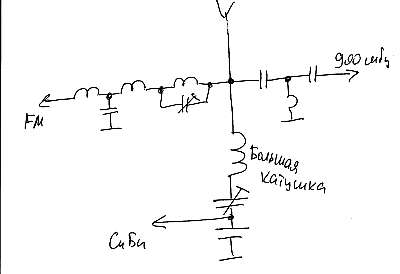 900 мгц
FM
Большая
катушка
СиБи